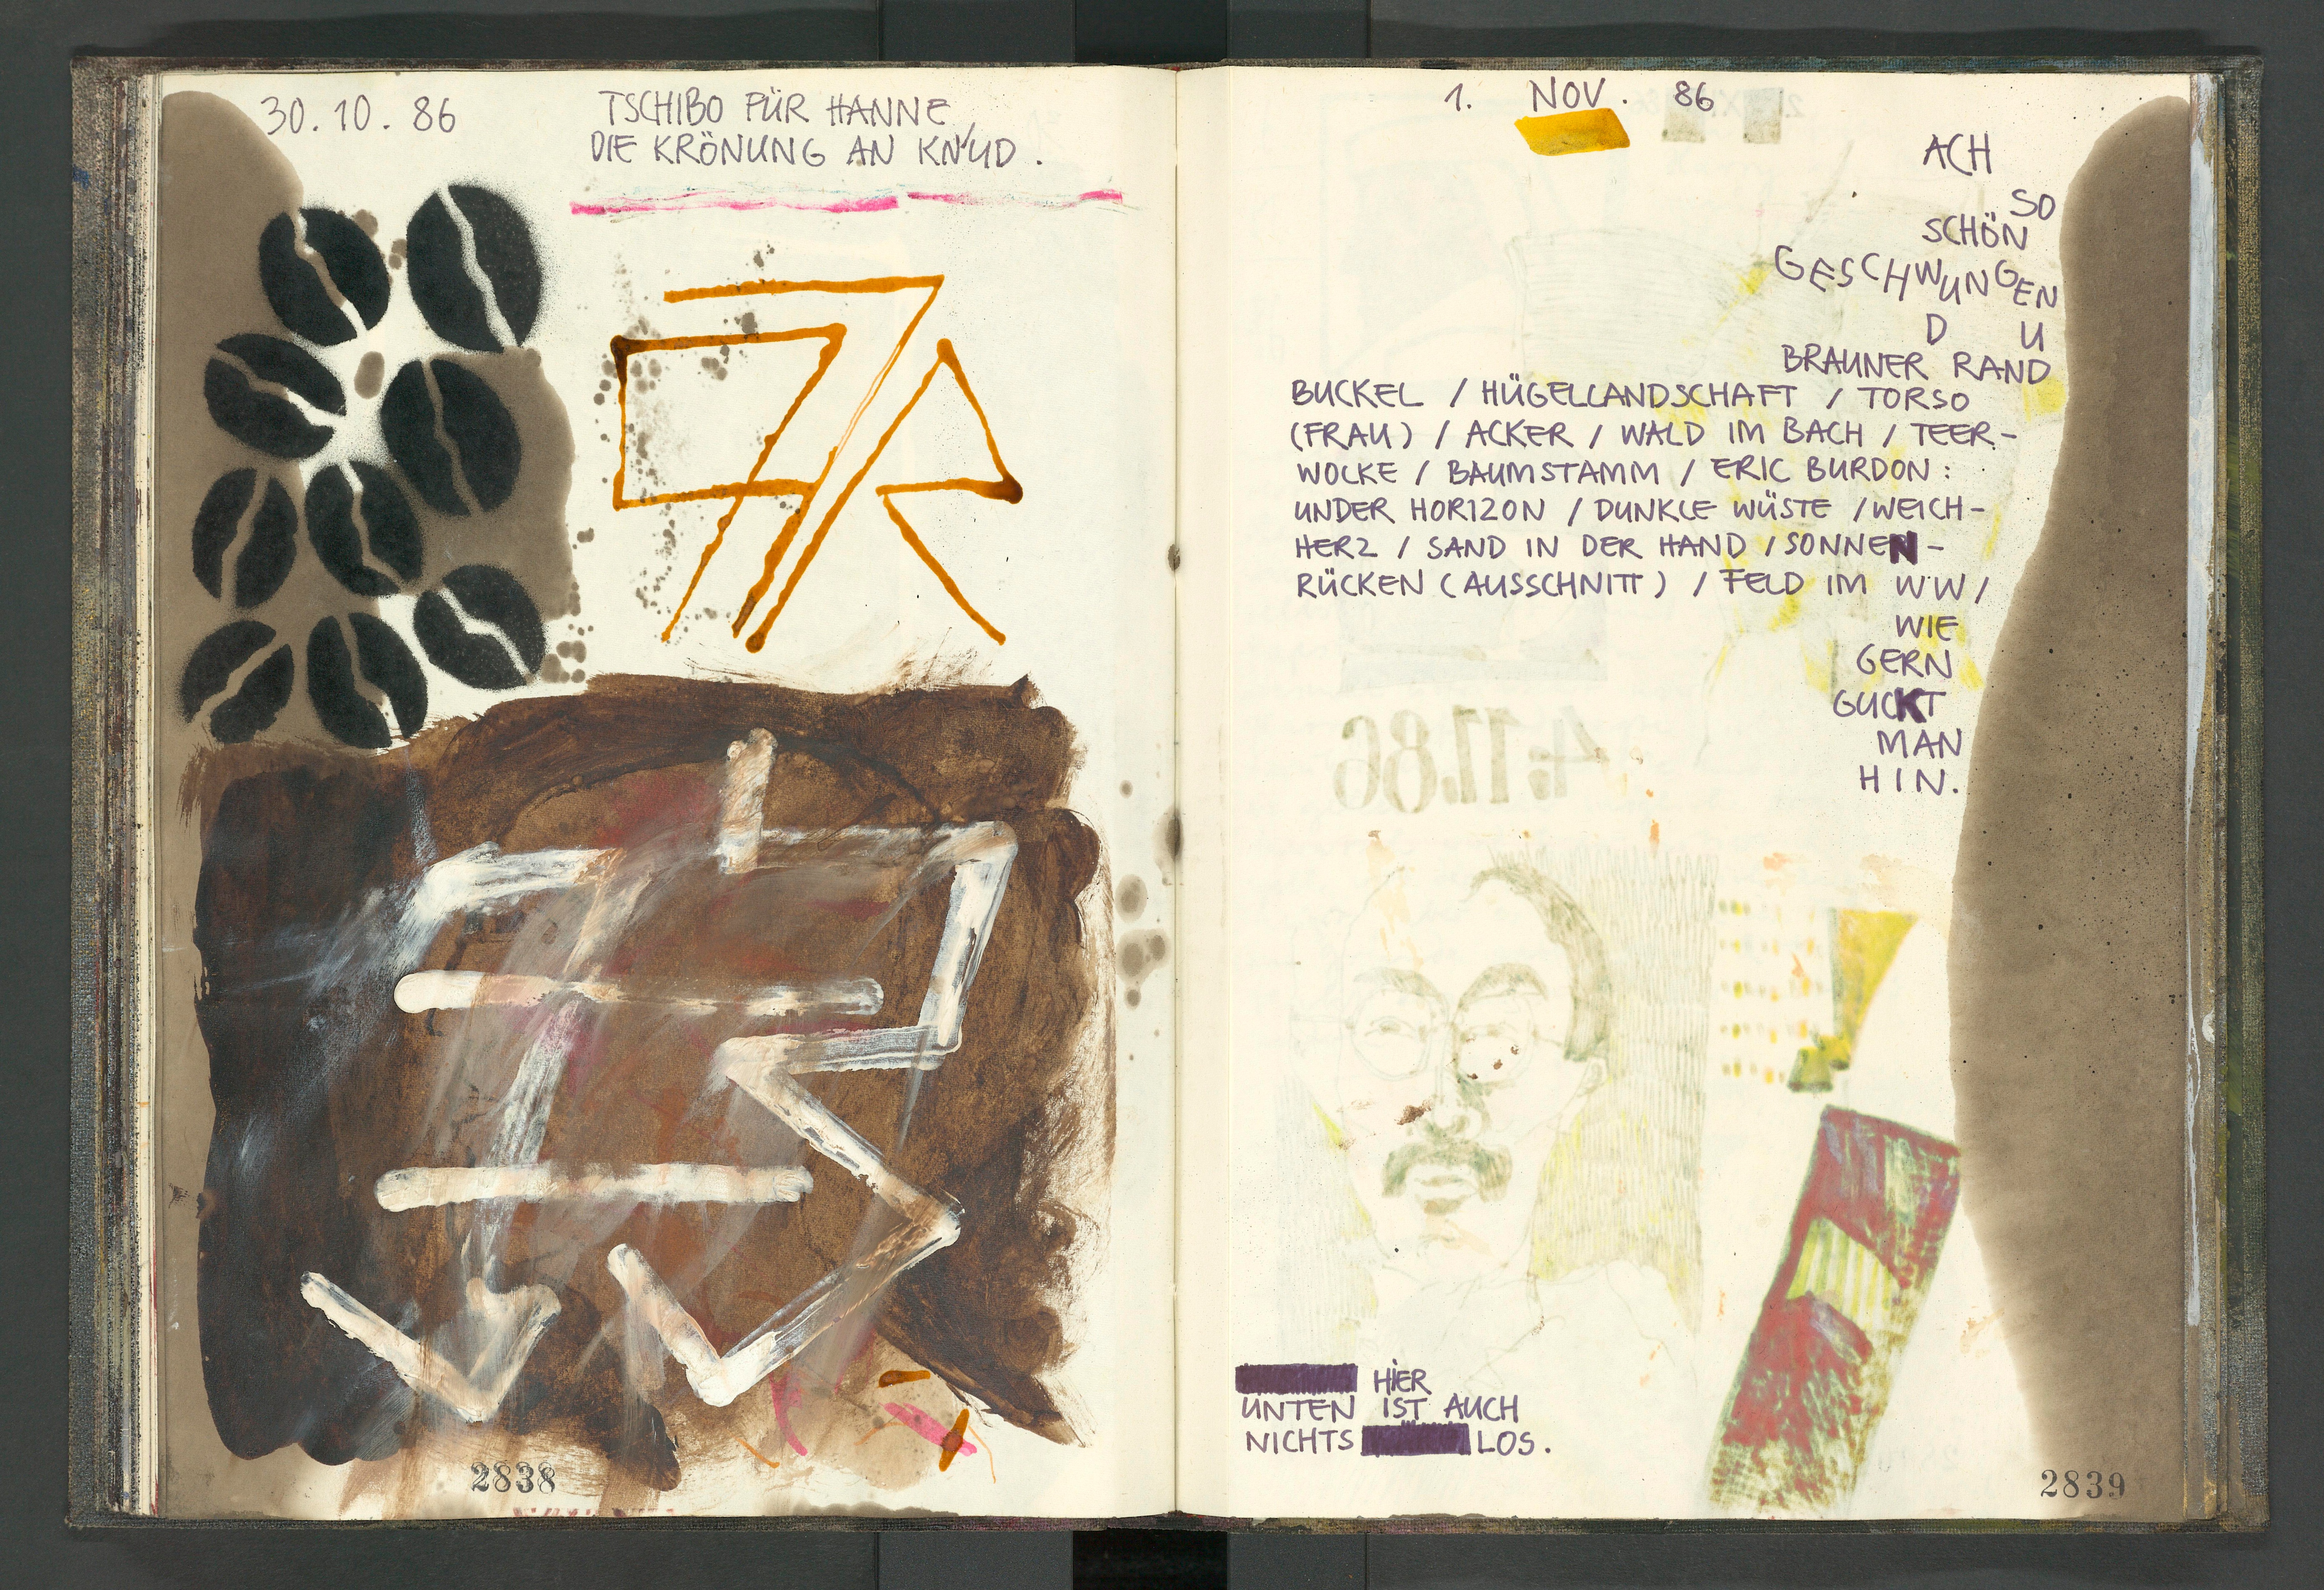 30.10.86
TSCHIBO FÜR HANNE
DIE KRÖNUNG AN KN'UD.
2838
1. NOV. 86
ACH
SO
SCHÖN
GESCHWUNGEN
D U
BRAUNER RAND
BUCKEL / HÜGELLANDSCHAFT / TORSO
(FRAU) / ACKER / WALD IM BACH / TEER-
WOLKE / BAUMSTAMM / ERIC BURDON:
UNDER HORIZON / DUNKLE WÜSTE / WEICH-
HERZ / SAND IN DER HAND / SONNEN-
RÜCKEN (AUSSCHNITT) / FELD IM WW /
WIE
GERN
GUCKT
MAN
HIN.
4.11.86
HIER
UNTEN IST AUCH
NICHTS LOS.
2839